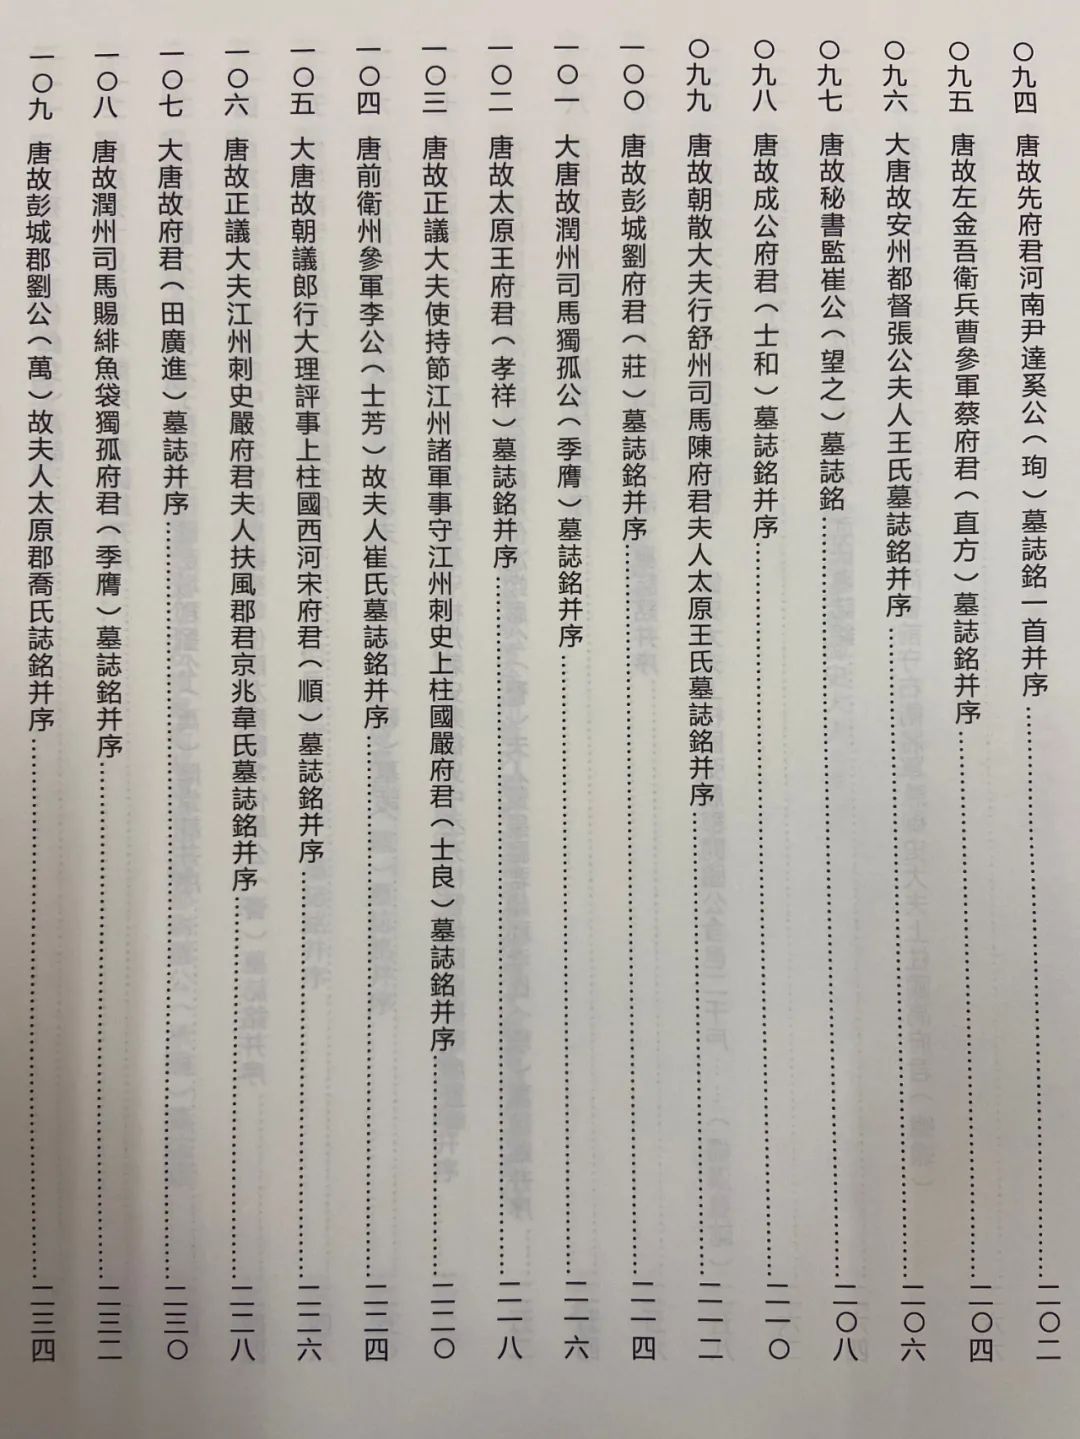 〇九四 唐故先府君河南尹達奚公（珣）墓誌銘一首并序……二〇二
〇九五 唐故左金吾衛兵曹參軍蔡府君（直方）墓誌銘并序……二〇四
〇九六 大唐故安州都督張公夫人王氏墓誌銘并序……二〇六
〇九七 唐故秘書監崔公（望之）墓誌銘……二〇八
〇九八 唐故成公府君（士和）墓誌銘并序……二一〇
〇九九 唐故朝散大夫行舒州司馬陳府君夫人太原王氏墓誌銘并序……二一二
一〇〇 唐故彭城劉府君（莊）墓誌銘并序……二一四
一〇一 大唐故潤州司馬獨孤公（季膺）墓誌銘并序……二一六
一〇二 唐故太原王府君（孝祥）墓誌銘并序……二一八
一〇三 唐故正議大夫使持節江州諸軍事守江州刺史上柱國嚴府君（士良）墓誌銘并序……二二〇
一〇四 唐前衛州參軍李公（士芳）故夫人崔氏墓誌銘并序……二二四
一〇五 大唐故朝議郎行大理評事上柱國西河宋府君（順）墓誌銘并序……二二六
一〇六 唐故正議大夫江州刺史嚴府君夫人扶風郡君京兆韋氏墓誌銘并序……二二八
一〇七 大唐故府君（田廣進）墓誌并序……二三〇
一〇八 唐故潤州司馬賜緋魚袋獨孤府君（季膺）墓誌銘并序……二三二
一〇九 唐故彭城郡劉公（萬）故夫人太原郡喬氏誌銘并序……二三四